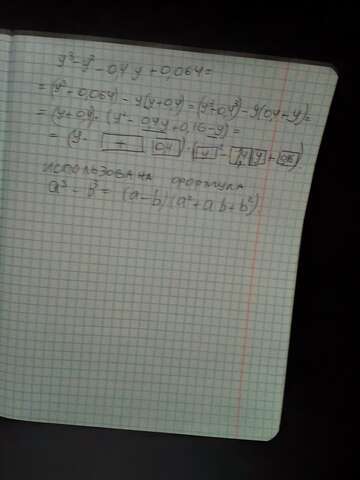 y³ - y² - 0,4y + 0,064 =
= (y³ - 0,064) - y(y + 0,4) = (y³ - 0,4³) - y(0,4 + y) =
= (y + 0,4) · (y² - 0,4y + 0,16 - y) =
= (y · + 0,4) · (y² - 1,4 y + 0,16)
использована формула
a³ - b³ = (a - b)(a² + ab + b²)